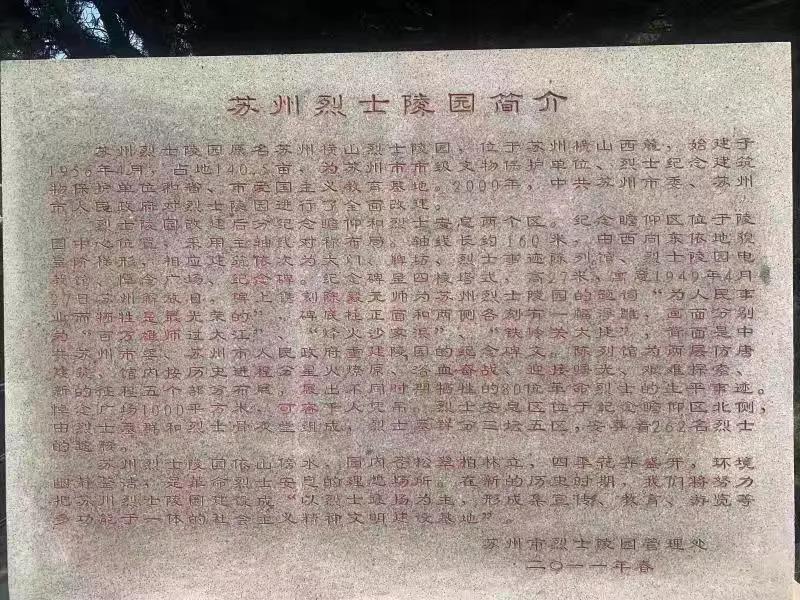 苏州烈士陵园简介
苏州烈士陵园原名苏州横山烈士陵园，位于苏州横山西麓，始建于
1956年4月，占地140.5亩，为苏州市市级文物保护单位、烈士纪念建筑
物保护单位和省、市爱国主义教育基地。2000年，中共苏州市委、苏州
市人民政府对烈士陵园进行了全面改建。
烈士陵园改建后分纪念瞻仰和烈士安息两个区。纪念瞻仰区位于陵
园中心位置，采用主轴线对称布局。轴线长约160米，由西向东依地貌
呈阶梯形，相应建筑依次为大门、牌坊、烈士事迹陈列馆、烈士陵园电
教馆、悼念广场、纪念碑。纪念碑呈四棱塔式，高27米，寓意1949年4月
27日苏州解放日。碑上镌刻陈毅元帅为苏州烈士陵园的题词“为人民事
业而牺牲是最光荣的”，碑底正面和两侧各刻有一幅浮雕，画面分别
为“百万雄师过大江”、“烽火沙家浜”、“铁岭关大捷”，背面是中
共苏州市委、苏州市人民政府重建陵园的纪念碑文。陈列馆为两层仿唐
建筑，馆内按历史进程分星火燎原、浴血奋战、迎接曙光、艰难探索、
新的征程五个部分布展，展出不同时期牺牲的80位革命烈士的生平事迹。
悼念广场1000平方米，可容千人凭吊。烈士安息区位于纪念瞻仰区北侧，
由烈士墓群和烈士骨灰堂组成，烈士墓群分三坛五区，安葬着262名烈士
的遗骸。
苏州烈士陵园依山傍水，园内苍松翠柏林立，四季花卉盛开，环境
幽静整洁，是革命烈士安息的理想场所。在新的历史时期，我们将努力
把苏州烈士陵园建设成“以烈士遗场为主，形成集宣传、教育、游览等
多功能于一体的社会主义精神文明建设基地”。
苏州市烈士陵园管理处
二〇一一年春